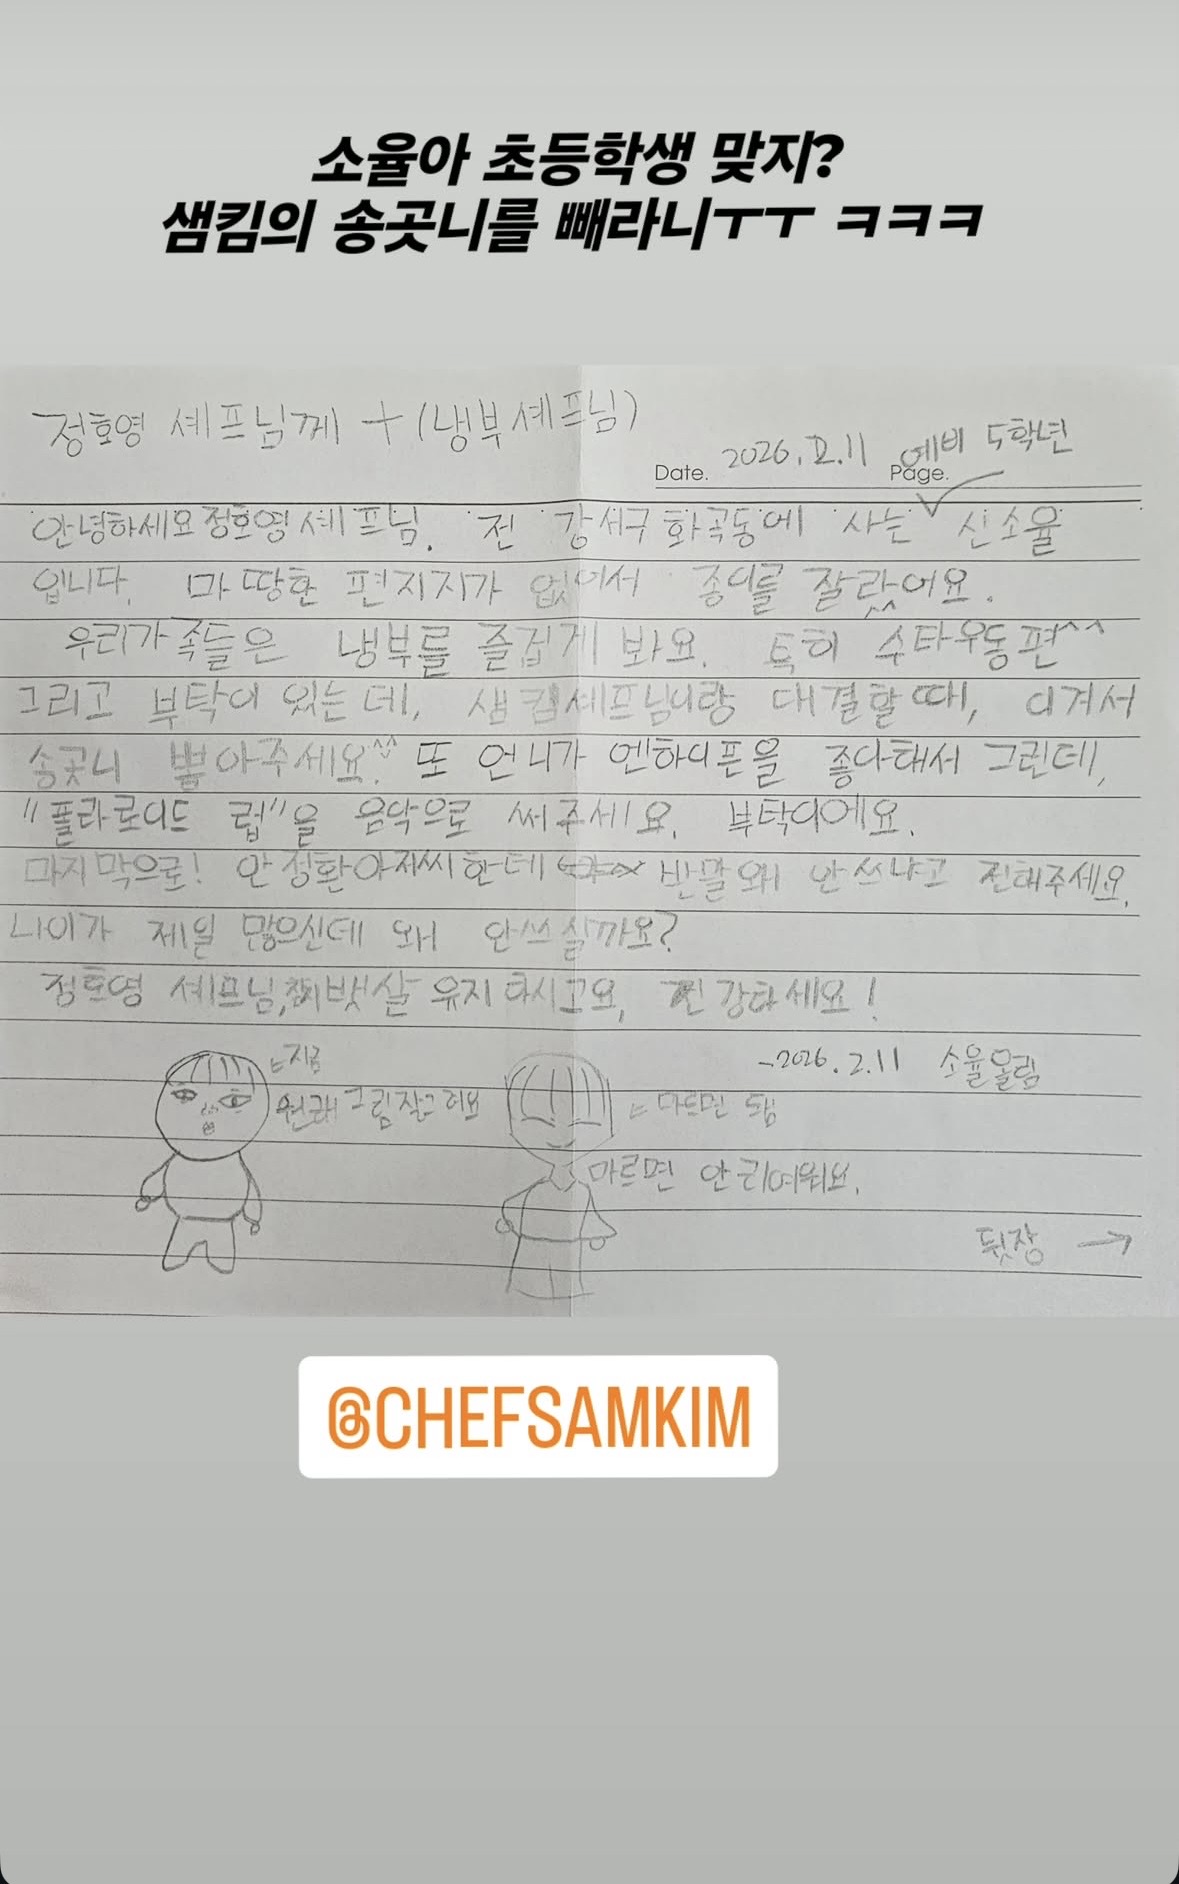 소율아 초등학생 맞지?
샘킴의 송곳니를 빼라니ㅜㅜ ㅋㅋㅋ
정호영 셰프님께 + (냉부셰프님)
Date. 2026. 2.11 Page. 예비 5학년
안녕하세요 정호영 셰프님. 전 강서구 화곡동에 사는 ✓ 신소율
입니다. 마땅한 편지지가 없어서 종이를 잘랐어요.
우리가족들은 냉부를 즐겁게 봐요. 특히 수타우동편^^
그리고 부탁이 있는데, 샘킴셰프님이랑 대결할때, 이겨서
송곳니 뽑아주세요.^^ 또 언니가 엔하이픈을 좋아해서 그런데,
"폴라로이드 럽"을 음악으로 써주세요. 부탁이에요.
마지막으로! 안정환아저씨한테 반말 왜 안쓰냐고 전해주세요.
나이가 제일 많으신데 왜 안쓰실까요?
정호영 셰프님, 뱃살 유지하시고요, 건강하세요!
-2026. 2.11 소율올림
⇐지금
원래 그림잘그려요
⇐ 마르면
마르면 안귀여워요.
뒷장 →
@CHEFSAMKIM